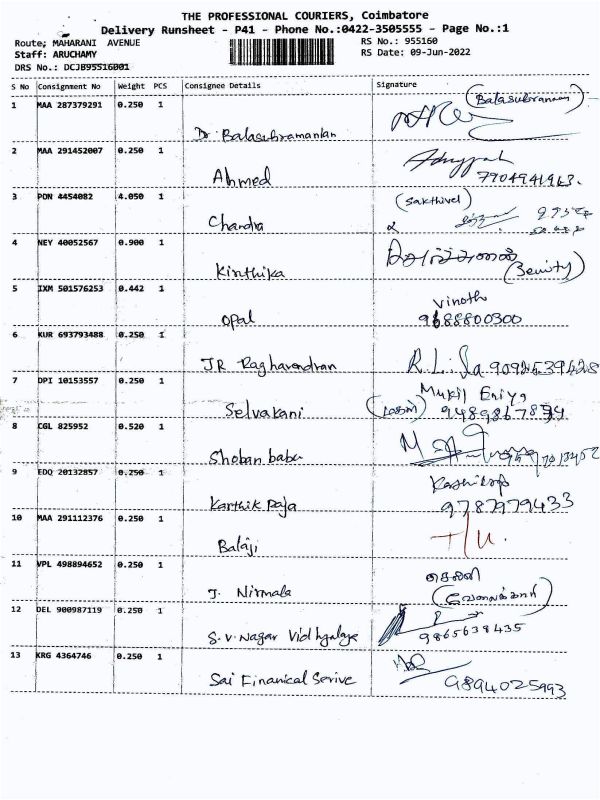 THE PROFESSIONAL COURIERS, Coimbatore
Delivery Runsheet - P41 - Phone No.:0422-3505555 - Page No.:1
Route: MAHARANI AVENUE
RS No.: 955160
Staff: ARUCHAMY
RS Date: 09-Jun-2022
DRS No.: DCJB95516001
S No Consignment No Weight PCS Consignee Details Signature
1 MAA 287379291 0.250 1 Dr Balasubramanian (Balasubramani)
2 MAA 291452007 0.250 1 Ahmed
3 PON 4454082 4.050 1 Chandra (Sakthivel)
4 NEY 40052567 0.900 1 Kirithika
(Security)
5 IXM 501576253 0.442 1 Opal Vinoth
9688800300
6 KUR 693793488 0.250 1 JR Raghavendran
7 DPI 10153557 0.250 1 Selvakani Mukil Eniya
(மகன்)
8 CGL 825952 0.520 1 Shoban babu
9 EDQ 20132857 0.250 1 Karthik Raja
9787979433
10 MAA 291112376 0.250 1 Balaji
11 VPL 498894652 0.250 1 J. Nirmala செல்வி
(வேலைக்காரி)
12 DEL 900987119 0.250 1 S.V. Nagar Vidhyalaya
9865638435
13 KRG 4364746 0.250 1 Sai Finanical Serive
9894025993